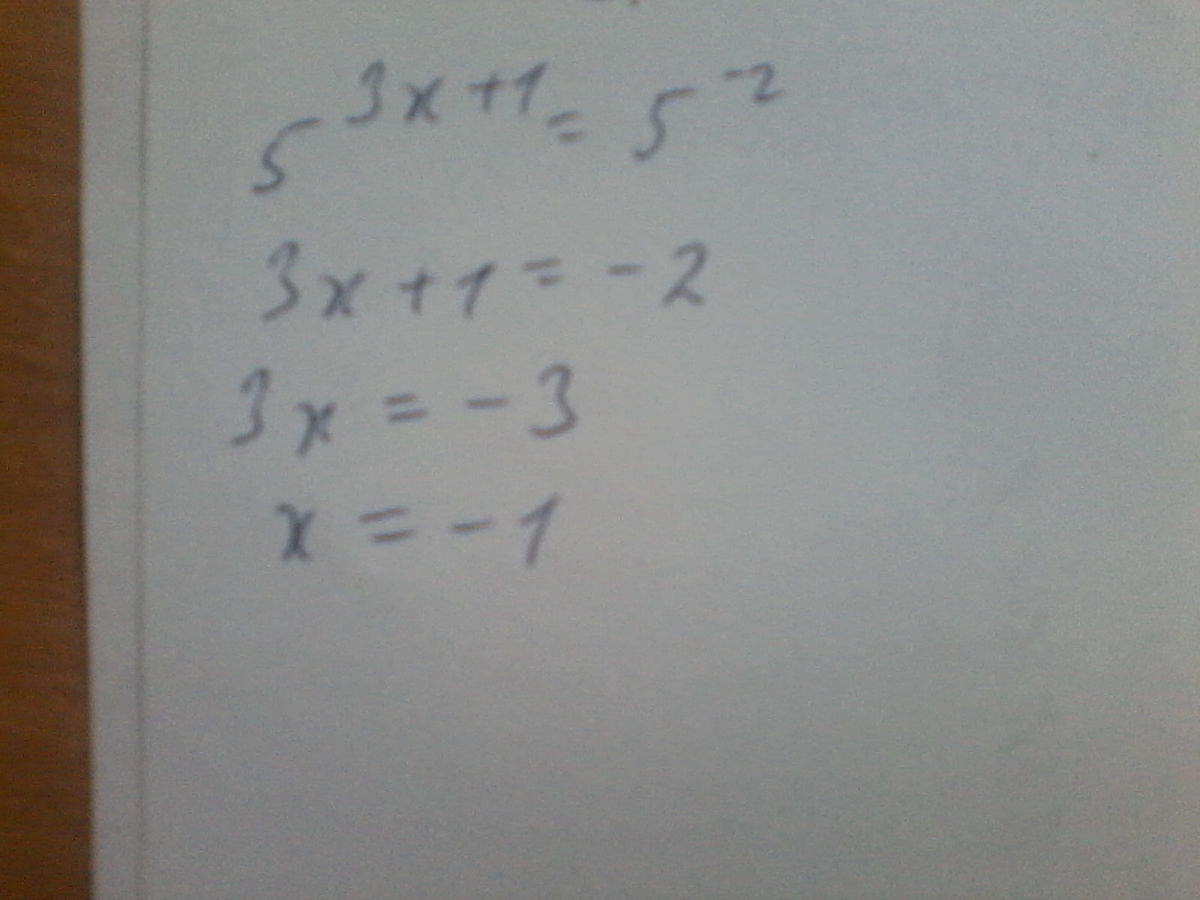 5^{3x+1} = 5^{-2}
3x + 1 = -2
3x = -3
x = -1